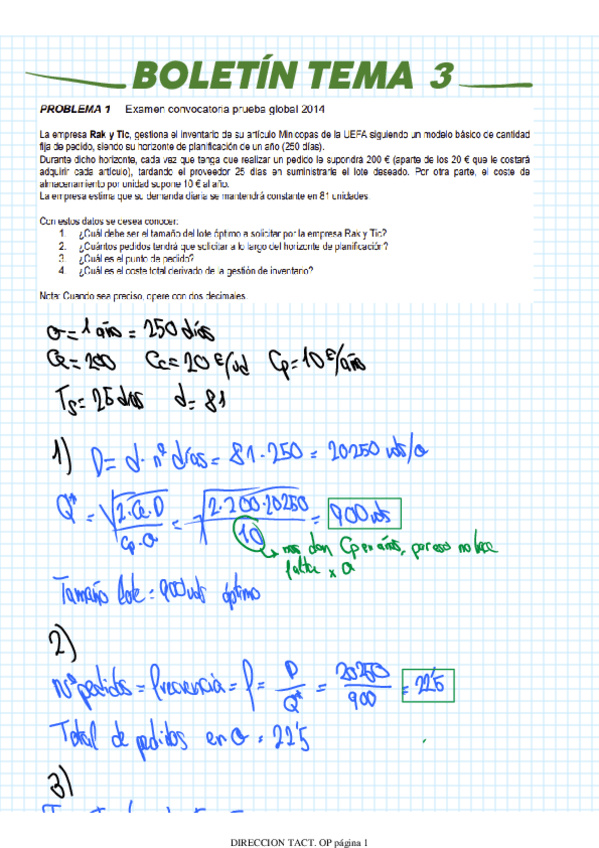 BOLETÍN TEMA 3
PROBLEMA 1 Examen convocatoria prueba global 2014
La empresa Rak y Tic, gestiona el inventario de su artículo Mincopas de la UEFA siguiendo un modelo básico de cantidad
fija de pedido, siendo su horizonte de planificación de un año (250 días).
Durante dicho horizonte, cada vez que tenga que realizar un pedido le supondrá 200 € (aparte de los 20 € que le costará
adquirir cada artículo), tardando el proveedor 25 días en suministrarle el lote deseado. Por otra parte, el coste de
almacenamiento por unidad supone 10 € al año.
La empresa estima que su demanda diaria se mantendrá constante en 81 unidades.
Con estos datos se desea conocer:
1. ¿Cuál debe ser el tamaño del lote óptimo a solicitar por la empresa Rak y Tic?
2. ¿Cuántos pedidos tendrá que solicitar a lo largo del horizonte de planificación?
3. ¿Cuál es el punto de pedido?
4. ¿Cuál es el coste total derivado de la gestión de inventario?
Nota: Cuando sea preciso, opere con dos decimales.
θ = 1 año = 250 días
Ce = 200 Cc = 20 €/ud Cp = 10 €/año
Ts = 25 días d = 81
1) D = d · nº días = 81 · 250 = 20250 uds/θ
Q* = √(2·Ce·D / Cp·θ) = √(2·200·20250 / 10) = 900 uds
nos dan Cp en años, por eso no hace
falta x θ
Tamaño lote = 900 uds óptimo
2)
Nº pedidos = frecuencia = f = D / Q* = 20250 / 900 = 22'5
Total de pedidos en θ = 22'5
3)
DIRECCION TACT. OP página 1